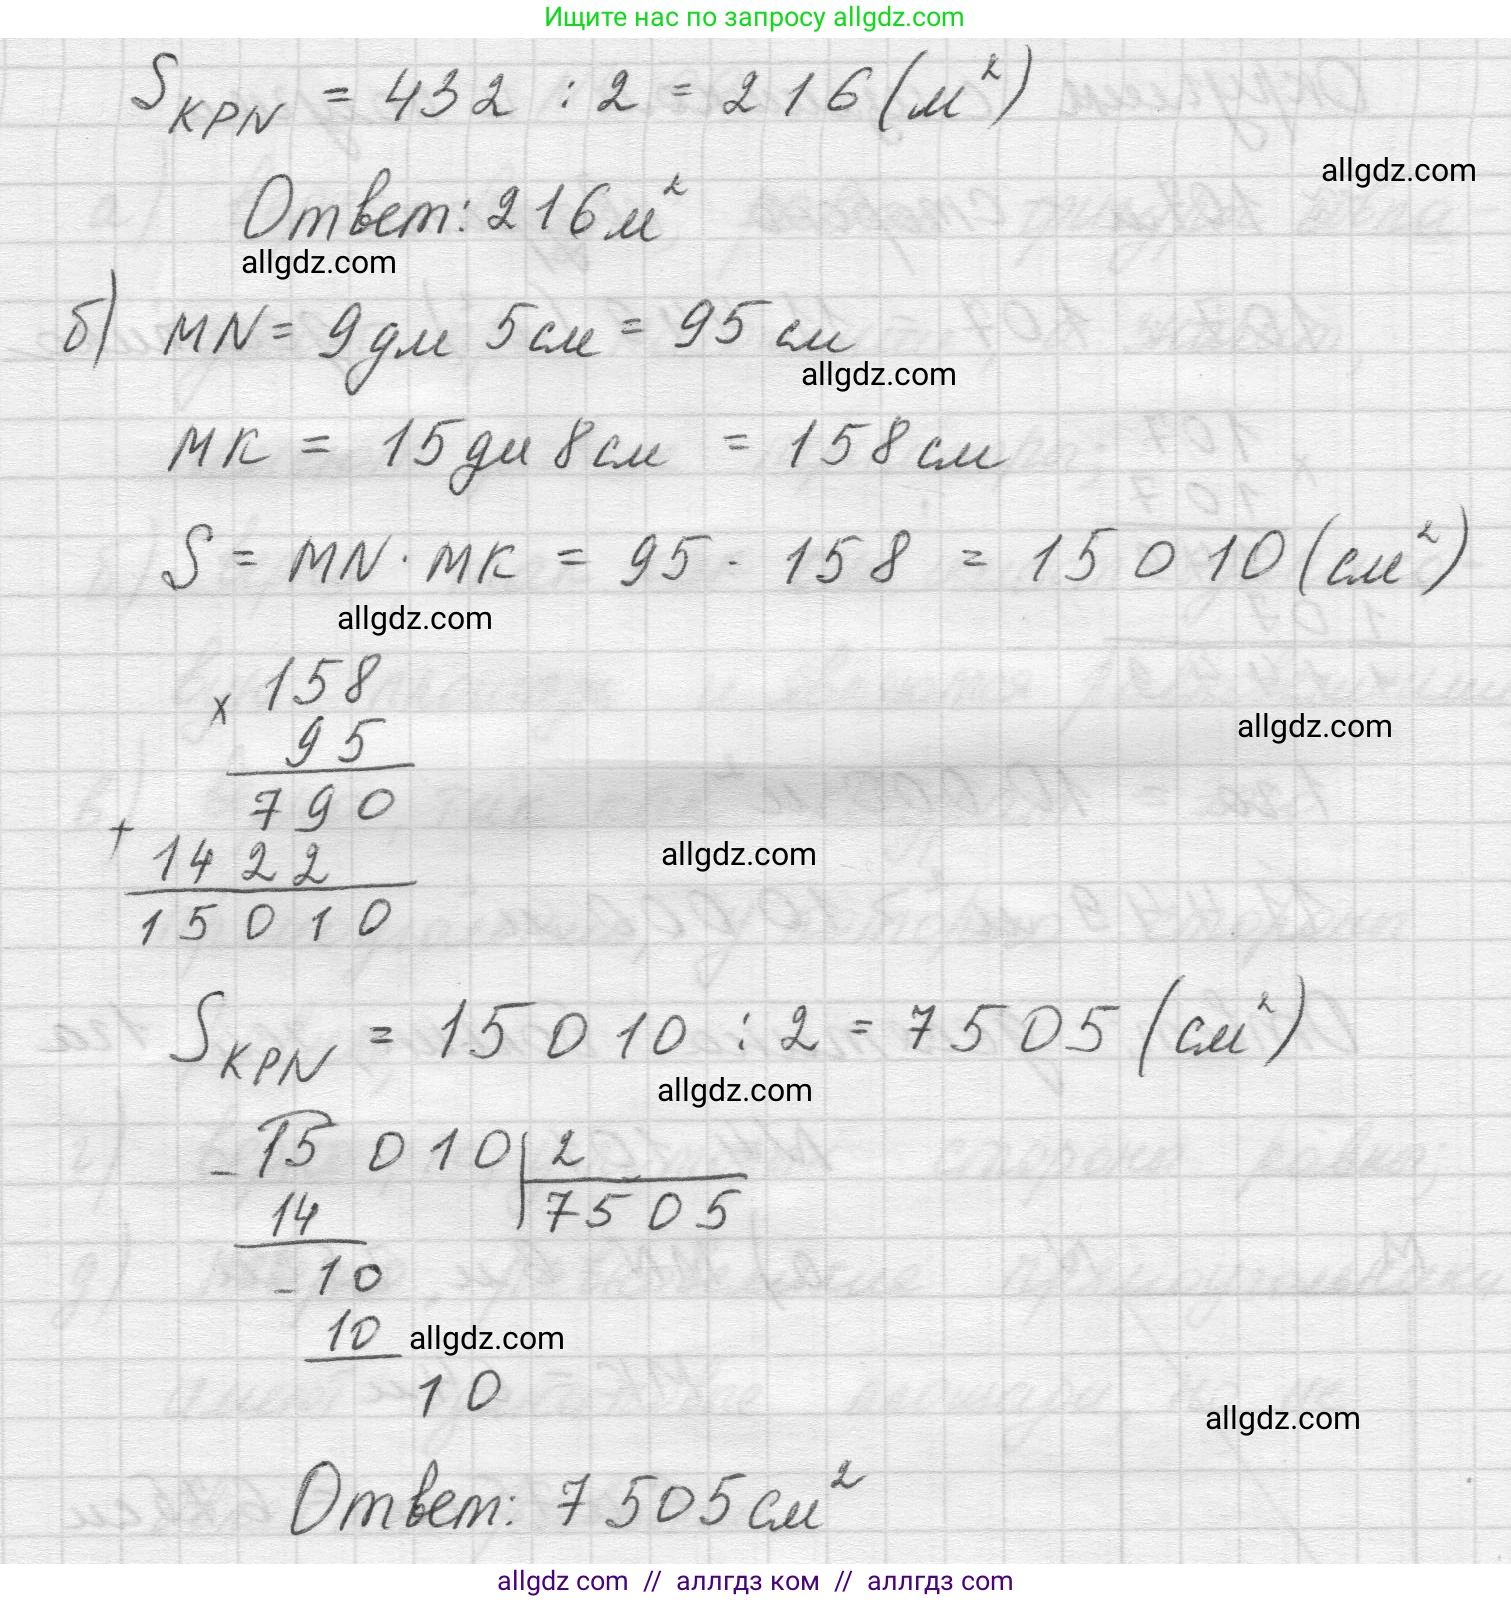 Ищите нас по запросу allgdz.com
S_KPN = 432 : 2 = 216 (м²)
allgdz.com
Ответ: 216 м²
allgdz.com
б) MN = 9 дм 5 см = 95 см
allgdz.com
MK = 15 дм 8 см = 158 см
S = MN · MK = 95 · 158 = 15010 (см²)
allgdz.com
x 158
95
allgdz.com
790
+
1422
allgdz.com
15010
S_KPN = 15010 : 2 = 7505 (см²)
allgdz.com
- 15010 | 2
14 7505
- 10
10
allgdz.com
10
allgdz.com
Ответ: 7505 см²
allgdz com // аллгдз ком // allgdz com